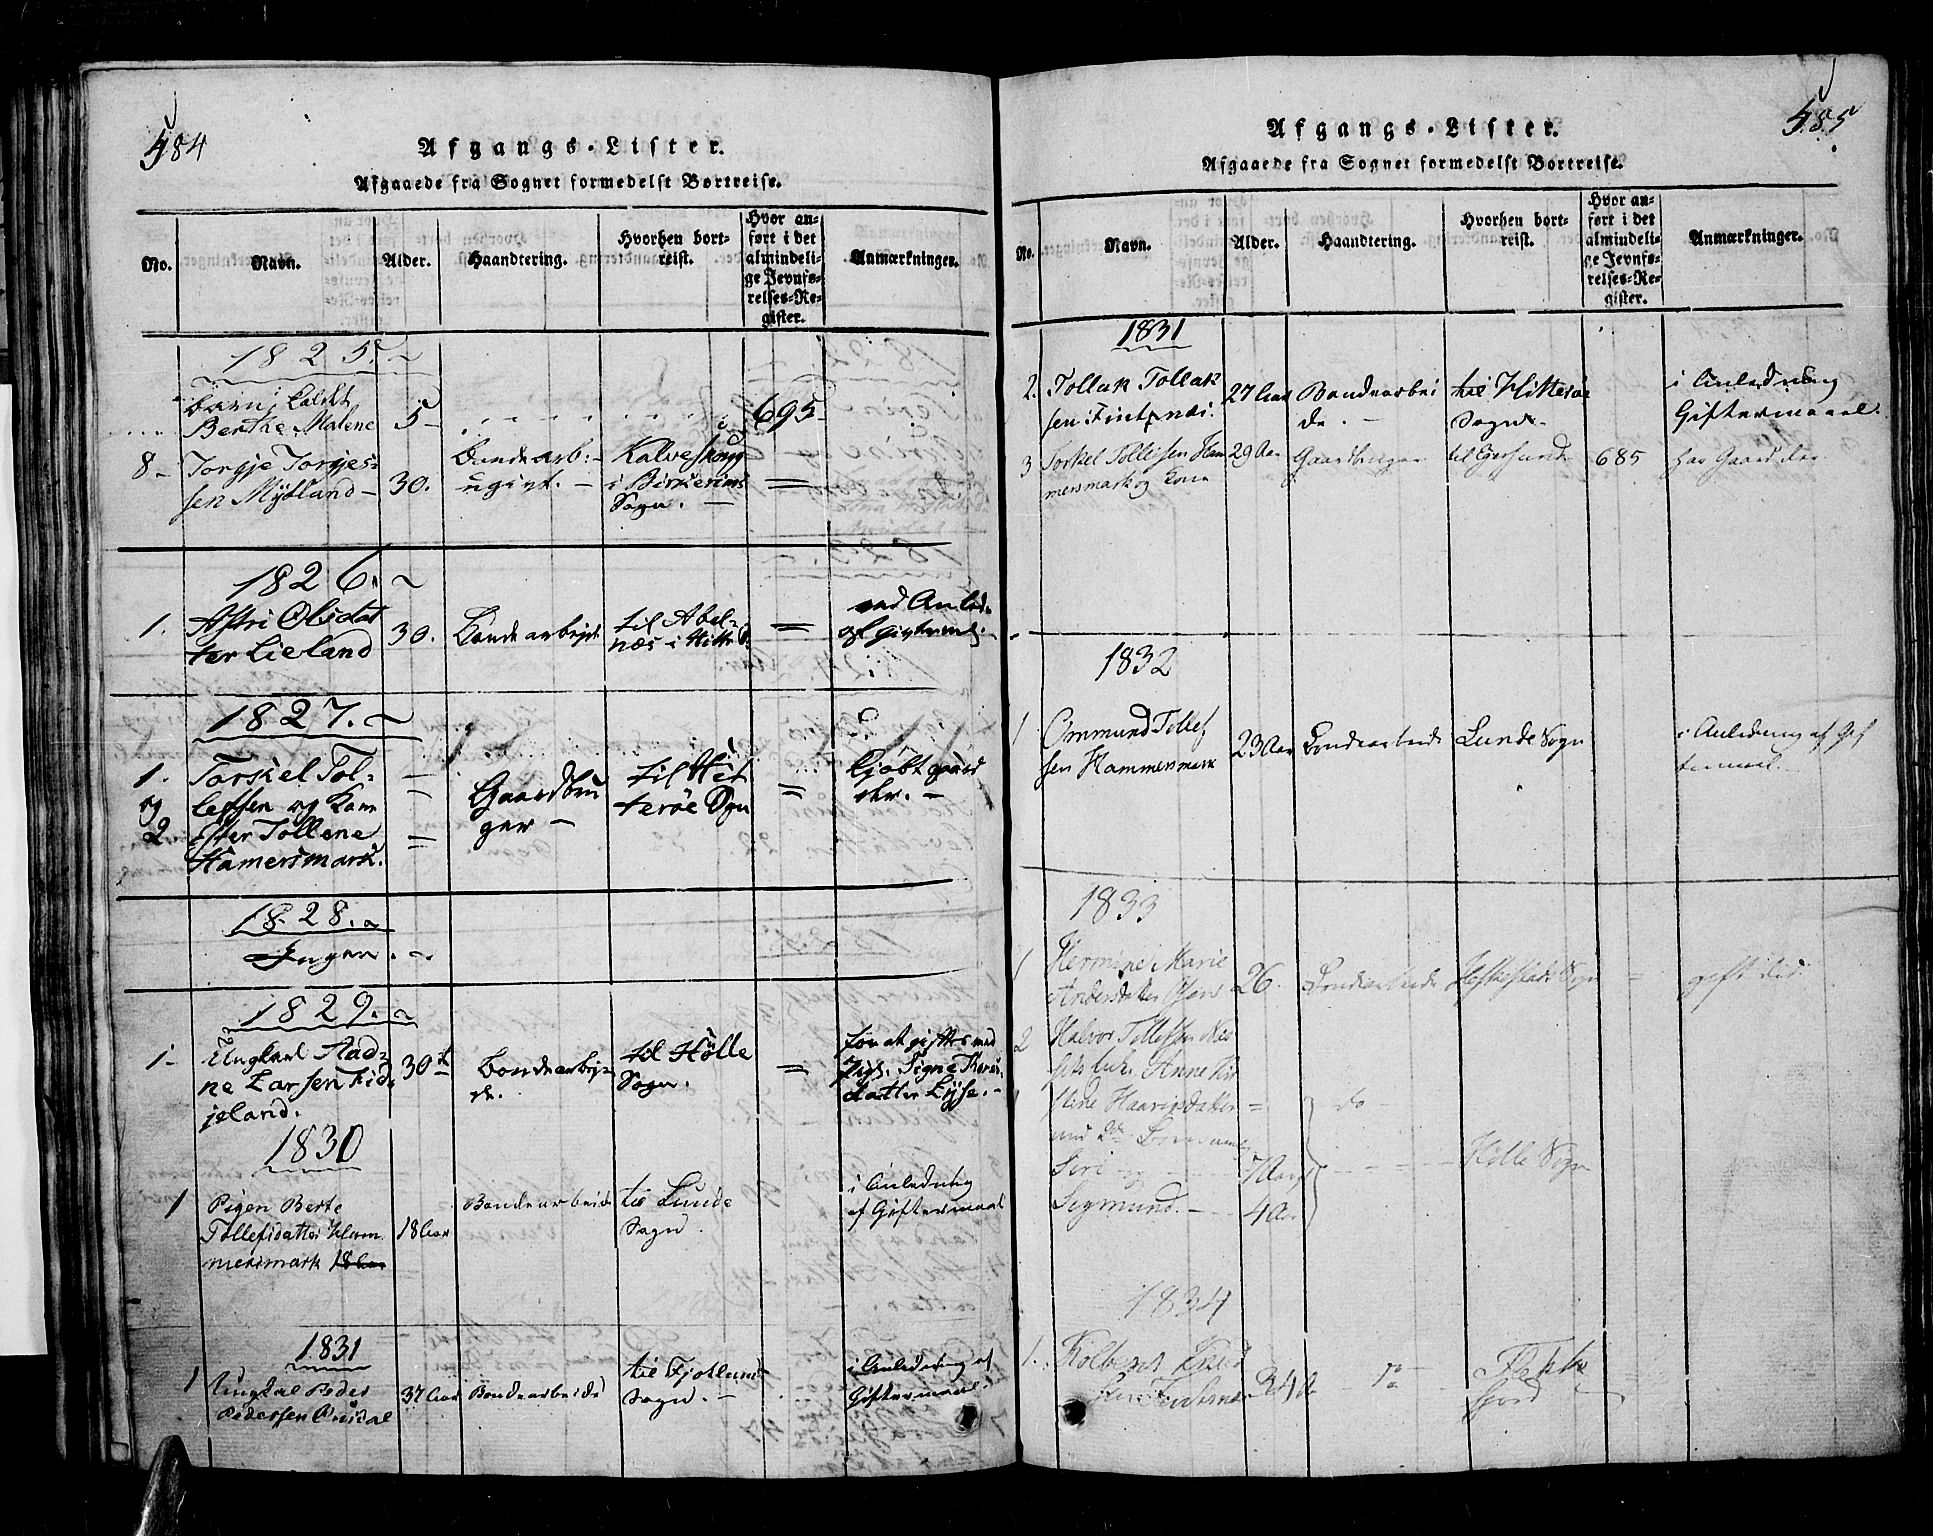 584
Afgangs-Lister.
Afgaaede fra Sognet formedelst Bortreise.
No.
Navn.
Alder.
Haandtering.
Hvorhen bort-
reist.
Hvor an-
ført i det
almindeli-
ge Jevnfø-
relses-Re-
gister.
Anmærkninger.
1825. ~
barn, kaldt
Berthe Malene
5 -
695
8 -
Torgje Torgjes-
sen Mydland -
30.
Bondearb: -
ugivt. -
Kalveskoug
i Birkerims
Sogn. -
=
1826. ~
1.
Astri Olsdat
ter Lieland
30.
Bondearbejde
til Abel-
næs i Hitterø
=
ved Anled-
af Givterm.
1827. ~
1.
og
2
Torskel Tol-
lefssen og Kone
Ester Tollene
Hamersmark.
Gaardbru
ger -
til Hit
terøe Sogn
=
kjøbt gaard
der. -
1828. ~
Ingen. -
1829. ~
1 -
Ungkarl Aad-
ne Larsen Eid-
jeland.
30
Bondearbej-
de.
til Hölle
Sogn.
=
for at giftes med
Pige Signe Tores
datter Lÿse. -
1830
1
Pigen Berte
Tollefsdatter Ham
mersmark 18 Aar
18 Aar
Bondearbeide
til Lunde
Sogn.
i Anledning
af Giftermaal
1831
1
Ungkal Peder
Pedersen
37 Aar
Bondearbeide
til Fjotlund
Sogn. -
i Anledning af
Giftermaal.
585
Afgangs-Lister.
Afgaaede fra Sognet formedelst Bortreise.
No.
Navn.
Alder.
Haandtering.
Hvorhen bort-
reist.
Hvor an-
ført i det
almindeli-
ge Jevnfø-
relses-Re-
gister.
Anmærkninger.
1831
2.
Tollak Tollak
sen Fintsnæs.
27 Aar
Bondearbei
de. -
til Hitterøe
Sogn -
i Anledning
Giftermaal.
3
Torkel Tollefsen Ham
mersmark og Kone
29 Aar
Gaardbruger
til Egersund
685
har Gaard der
1832
1
Ommund Tollef
sen Hammersmark
23 Aar
Bondearbeide
Lunde Sogn
i Anledning af Gif
termaal.
1833
1
Hermine Marie
Andersdatter
26.
Bondearbeide
Heskestads Sogn
=
gift der
2
Halvor Tollefsen
Anne Kir
stine Haavigsdatter
=
do
med 2de Børn
Siri og
7 Aar
Hölle Sogn
Sigmund. -
4 Aar
1834
1.
Kolbent
sen Fintsnæs
34 A
do
Flekke
fjord